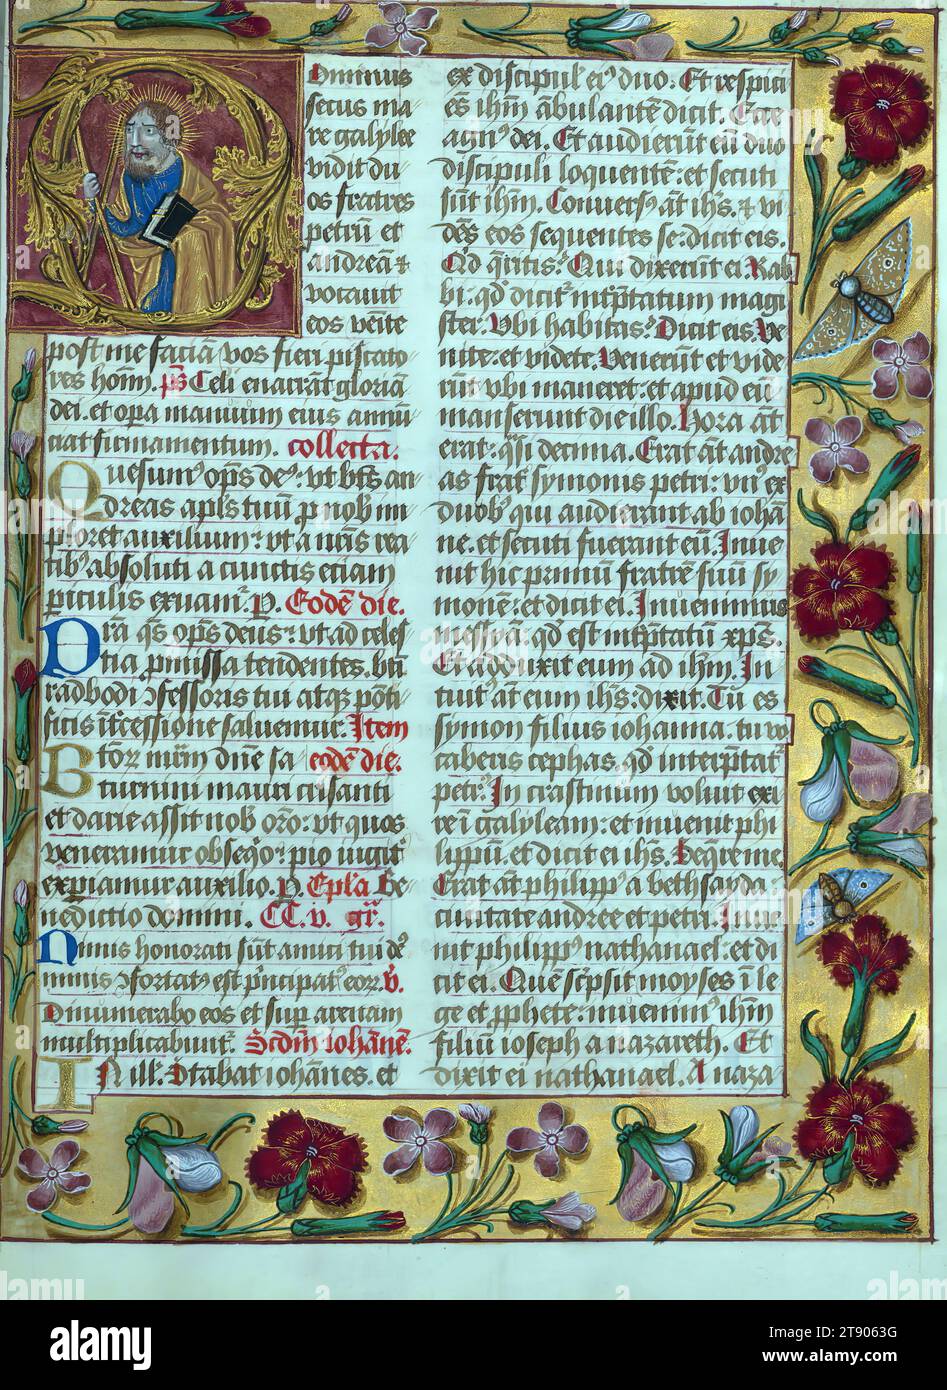 Dominus
secus ma
re galylee
vidit du
os fratres
petrū et
andreā ⁊
vocavit
eos veīte
post me faciā vos fieri piscato
res homī. ps̄ Celi enarrāt gloriā
dei. et opera manuum eius annū
ciat firmamentum. collecta.
Quesumꝰ op̄s deꝰ: vt btūs an
dreas apl̄s tuū ꝓ nob̄ im
ploret auxilium: vt a nr̄is rea
tibꝰ absoluti a cunctis etiam
ꝑiculis exuamꝰ. P. Eodē die.
Da qs̄ op̄s deus: vt ad celes
tia ꝓmissa tendentes. bti
radbodi ꝯfessoris tui atqꝫ pōti
ficis īt̄cessione salvemur. Item
Btorꝝ mr̄m dn̄e sa eodē die.
turnini mauri crisanti
et darie assit nob̄ or̄o: vt quos
veneramur obseq̄o: pio iugit̄
expiamur auxilio. P. Epl̄a Be
nedictio domini. CC.v. gr̄.
Nimis honorati sūt amici tui dꝰ
nimis ꝯfortatꝰ est pͥncipatꝰ eorꝝ. v̄.
Dinumerabo eos et sup̄ arenam
multiplicabunt̄. Scdm̄ iohānē.
IN illꝰ. Stabat iohānes. et
ex discipul̄ eiꝰ duo. Et respici
ēs ihm̄ ābulantē dicit. Ecce
agnꝰ dei. Et audierūt eū duo
discipuli loquentē: et secuti
sūt ihm̄. Conversꝰ āt ihs̄. ⁊ vi
dēs eos sequentes se: dicit eis.
Qd̄ q̄ritis? Qui dixerūt ei Rab
bi. qd̄ dicit̄ int̄p̄tatum magi
ster. Vbi habitas? Dicit eis. Ve
nite: et videte. Venerūt et vide
rūt vbi maneret: et apud eū
manserunt die illo. Hora āt
erat: q̄si decima. Erat āt andre
as frat̄ symonis petri: vnꝰ ex
duobꝰ qui audierant ab iohā
ne. et secuti fuerant eū. Inve
nit hic primū fratrē suū sy
monē: et dicit ei. Invenimus
messyā: qd̄ est int̄p̄tatū xp̄s.
Et adduxit eum ad ihm̄. In
tuitꝰ āt eum ihs̄: dixit. Tu es
symon filius iohanna: tu vo
caberis cephas. qd̄ interp̄tat̄
petrꝰ. In crastinum voluit exi
re ī galyleam: et invenit phi
lippū: et dicit ei ihs̄. Seq̄re me.
Erat āt philippꝰ a bethsayda
civitate andree et petri. Inve
nit philippꝰ nathanael: et di
cit ei. Quē sc̄psit moyses ī le
ge et ꝓphete: invenimꝰ ihm̄
filiū ioseph a nazareth. Et
dixit ei nathanael. A naza
alamy
Image ID: 2RT9063G
www.alamy.com